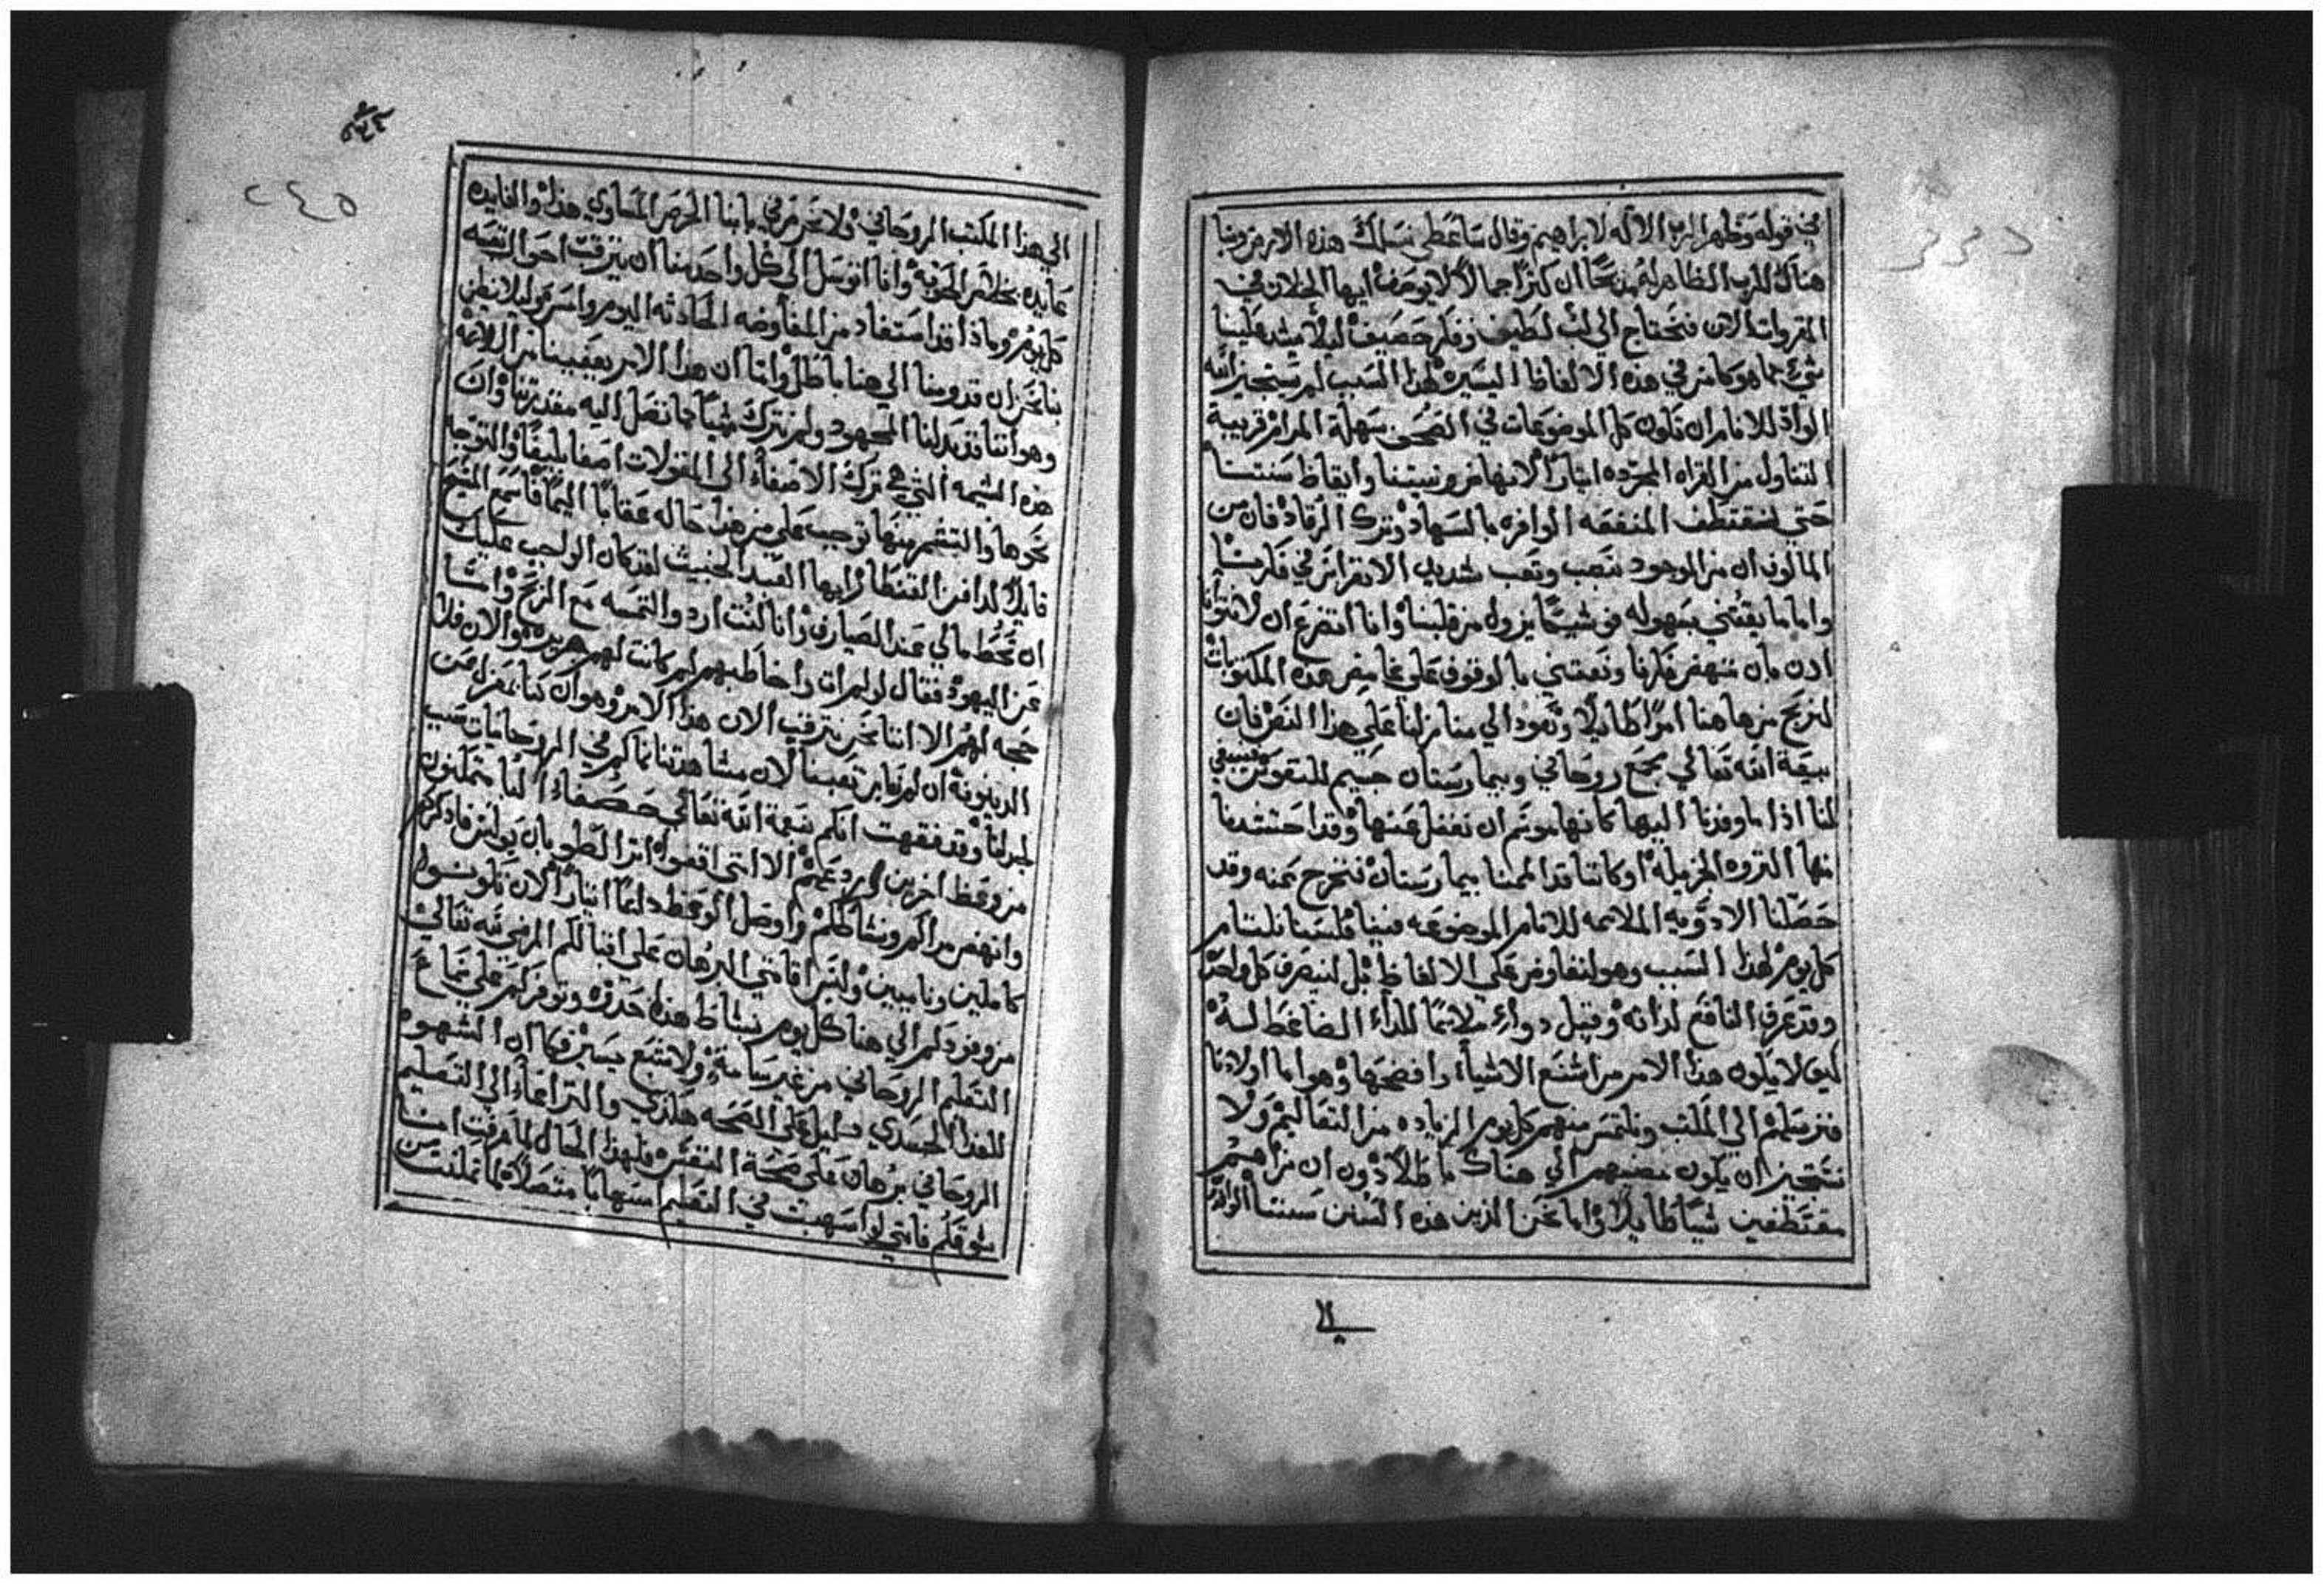 في قوله وظهر الرب الاله لابراهيم وقال ساعطي نسلك هذه الارض وبنا
هناك للرب الظاهر له مذبحًا ان كنزًا جمالًا لا يوصف ايها الخلان في
المقروات الان فنحتاج الي لب لطيف وفكر حصيف ليلا يشد علينا
شيء مما هو كامن في هذه الالفاظ اليسيره لهذا السبب لم يستجيز الله
الواد للانام ان تكون كل الموضوعات في الصحف سهلة المرام قريبة
التناول من القراه المجرده ايثارًا لانهاض ونيتنا وايقاظ سنتنا
حتي لنقتطف المنفعه الوافره بالسهاد وترك الرقاد فان من
المالوف ان من الموجود بنصب وتعب شديد الانغراس في فكرتنا
واما ما يقتني بسهوله فوشيكًا يزول من قلبنا وانا اتضرع ان لا نتوانا
اذن بان ننهض فكرنا ونعتني بالوقوف علي غامض هذه المكتوبات
لنربح من هاهنا امرًا طايلًا ونعود الي منازلنا علي هذا النص فان
بيعة الله تعالي مجمع روحاني وبيمارستان جسيم للنفوس فينبغي
لنا اذا ما وفدنا اليها كانها موسم ان نغفل عنها وقد احتشدنا
منها الثروه الجزيله او كاننا قد الممنا بيمارستان فنخرج عنه وقد
حصلنا الادويه الملائمه للالام الموضوعه فينا فلسنا نلتام
كل يوم لهذا السبب وهو لنفاوض علي الالفاظ بل لنيصرف كل واحد
وقد عرف النافع لذاته وقبل دواءً ملايمًا للداء الضاغط له
كيف لا يكون هذا الامر من اشنع الاشياء وافضحها وهو اما اولادنا
فنرسلهم الي المكتب ونلتمس منهم كل يوم الزياده من التعاليم ولا
نستجيز ان يكون مضيهم الي هناك باطلًا دون ان نراهم
مقتطفين شيًا طايلًا واما نحن الذين هذه السنن سنتنا الوافره
الي هذا المكتب الروحاني ولا نحرص في باينا الحرص المساوي هذا والفايده
عايده بخلاص الحوبه وانا اتوسل الي كل واحد منا ان يترقب احوال نفسه
كل يوم وماذا قد استفاد من المفاوضه الحادثه اليوم وامس وليلا نظن
بنا نحن ان قدومنا الي هنا باطل واما ان هذا الامر يعفينا من اللايمه
وهو اننا قد بذلنا المجهود ولم نترك شيًا مما تصل اليه مقدرتنا وان
هذه الشيمه التي هي ترك الاصغاء الي المقولات اصغا بليغًا والتوجه
نحوها والتنعم منها توجب علي من هذا حاله عقابًا اليمًا فاسمع المسيح
قايلًا لدافن القنطار ايها العبد الخبيث لقد كان الواجب عليك
ان تحط مالي عند الصيارف وانا لكنت ارد والتمسه مع الربح وانشا
عن اليهود فقال لو لم ات واخاطبهم لم كانت لهم جريره والان فلا
حجه لهم الا اننا نحن نترقب الان هذا الامر وهو ان كنا بمعزل عن
الدينونه ان لم نعاين تعبنا لان مشاهدتنا نماكم في الروحانيات سبب
لجذلنا وقد فقهت انكم بنعمة الله تعالي حصفاء البا متمكنون
من وعظ اخرين وردعهم الا انني اقفوا اثر الطوبان بولس فاذكركم
وانهض مراكم ونشاطكم واوصل الوعظ دايمًا ايثارًا لان تكونوا
كاملين وناميين وليس اقامتي البرهان علي اقبالكم المرضي لله تعالي
من وفودكم الي هنا كل يوم بنشاط هذا حدوه وتوفركم علي سماع
التعليم الروحاني من غير سامةٍ ولا شبع يسير فكما ان الشهوه
للغذا الجسدي دليل علي الصحه هكذي والتراعاء الي التعليم
الروحاني برهان علي صحة النفس ولهذا الحال لما عرفت انا
شوقكم فانني لو اسهبت في التعليم اسهابًا متصلًا لما تمكنت من